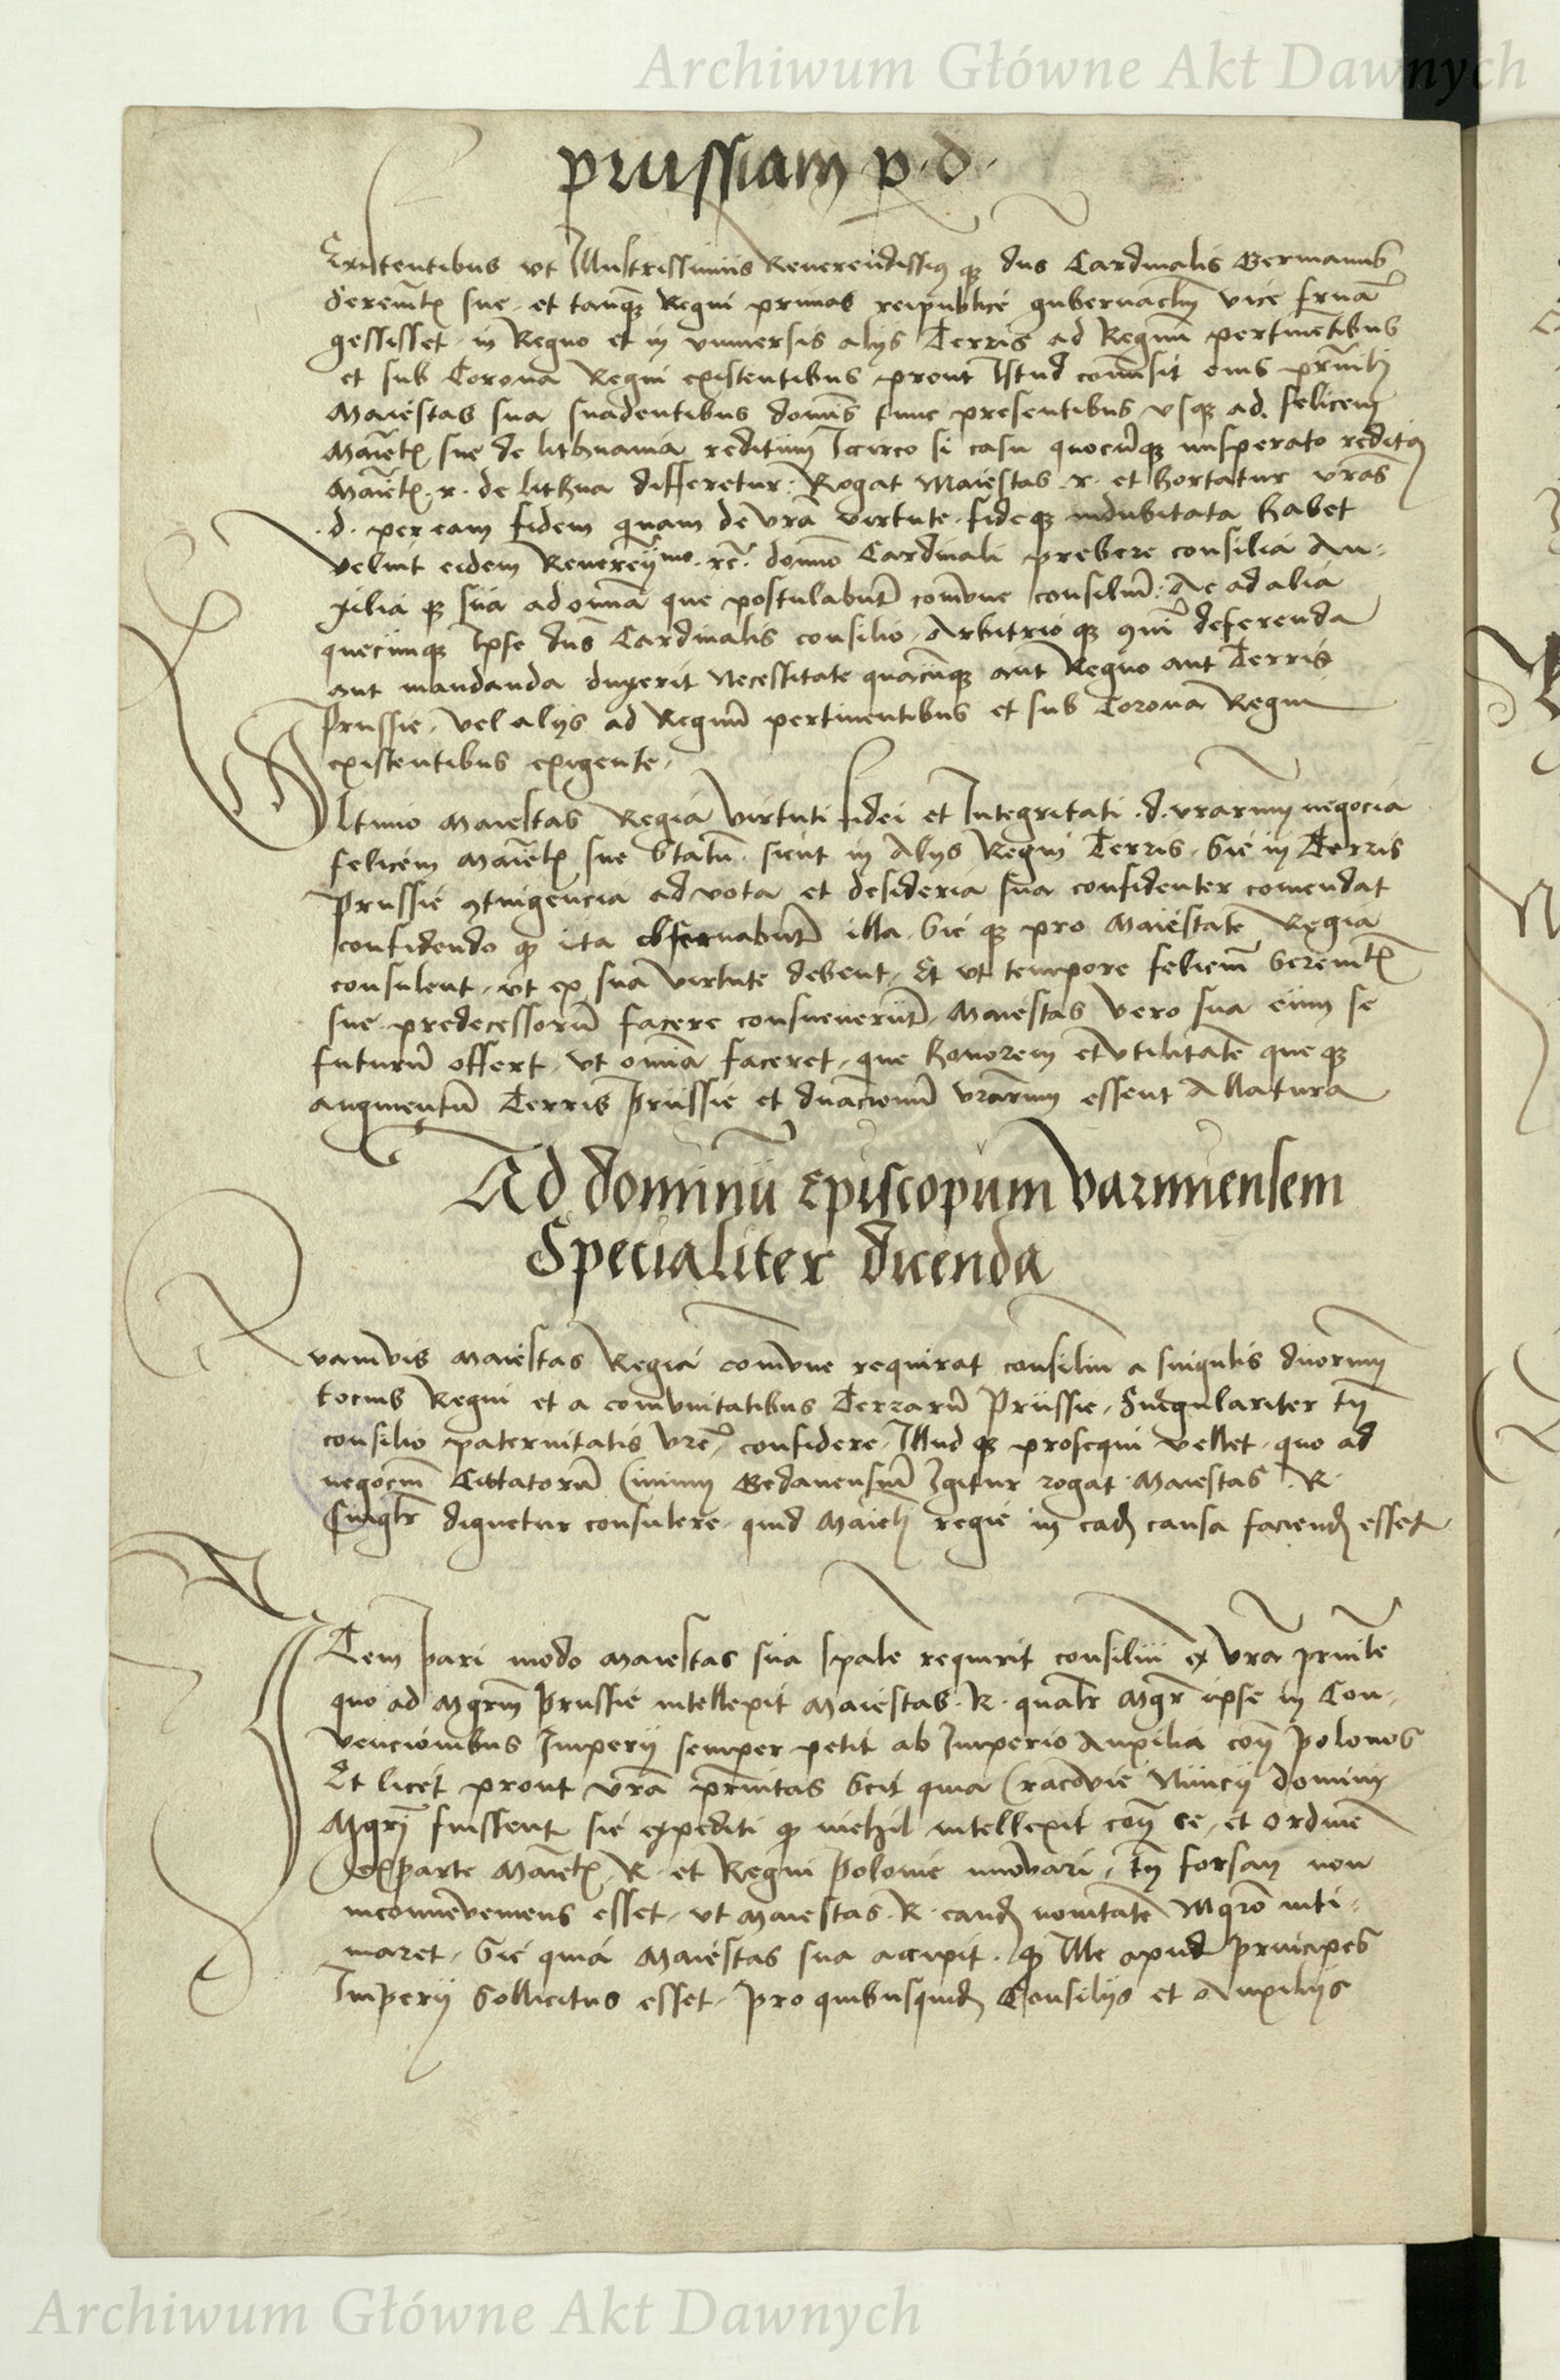 Archiwum Główne Akt Dawnych
prussiam p. d.
Existentibus vt Illustrissimus Reuerendissimusq dns Cardinalis Germanus
Serenitatis sue et tanq Regni primas reipublice gubernaclm vice fraterna
gessisset in Regno et in vniuersis alijs Terris ad Regnu pertinetibus
et sub Corona Regni existentibus prout Istud comisit eius
Maiestas sua suadentibus dominis tunc presentibus vsq ad felicem
Maietis sue de lithuania reditum Iccirco si casu quocuq insperato reditus
Maietis r. de lithua differetur. Rogat Maiestas r. et hortatur vras
d. per eam fidem quam de vra virtute fideq indubitata habet
velint eidem Reueren mo domino Cardinali prebere consilia Au-
xilia q sua ad omia que postulabunt comune consiliu. Ac ad alia
quecumq Ipse dns Cardinalis consilio Arbitrioq deferenda
aut mandanda duxerit Necessitate quacumq aut Regno aut Terris
Prussie, vel alijs ad Regnu pertinentibus et sub Corona Regni
existentibus exigente,
Vltimo Maiestas Regia virtuti fidei et Integritati .d. vrarum negocia
felicem Maietis sue Statu sicut in Alijs Regni Terris, Sic in Terris
Prussie contingencia ad vota et desideria sua confidenter comendat
confidendo q ita obseruabunt illa, Sic q pro Maiestate Regia
consulent, vt ex sua virtute debent, Et vt tempore felicium Serenitatis
sue predecessoru facere consueuerunt, Maiestas vero sua eum se
futuru offert, vt omia faceret, que honorem et vtilitate queq
augmentu Terris Prussie et dnacionu vrarum essent Allatura
Ad dominu Episcopum Varmiensem
Specialiter dicenda
Quamvis Maiestas Regia comune requirat consiliu a singulis dnorum
tocius Regni et a comunitatibus Terraru Prussie, Singulariter tn
consilio paternitatis vre confidere, Illud q prosequi vellet, quo ad
negociu Ciuitatoru Ciuium Gedanensiu Igitur rogat Maiestas R.
singlr dignetur consulere, quid Maieti regie in ead causa faciend esset
Item pari modo Maiestas sua spale requirit consiliu ex vra prnitate
quo ad Mgrm Prussie intellexit Maiestas R. qualr Mgr ipse in Con-
vencionibus Imperij semper petit ab Imperio Auxilia con Polonos
Et licet prout vra prnitas Scit quia Cracovie Nuncij domini
Mgri fuissent sic expediti q niehil intellexit con se, et ordine
ex parte Maietis R. et Regni Polonie innovari, tn forsan non
inconueniens esset, vt Maiestas R. eand nouitate Mgro inti-
maret, Sic quia Maiestas sua accipit, q Ille apud principes
Imperij Sollicitus esset, pro quibusquid Consilijs et Auxilijs
Archiwum Główne Akt Dawnych